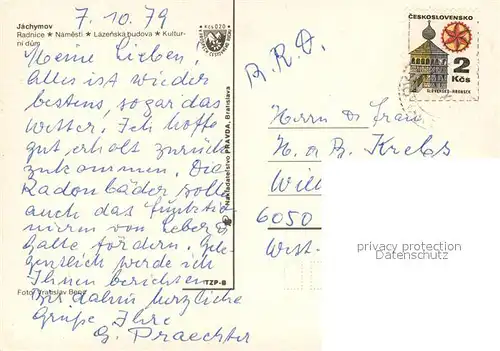 7.10.79
Jáchymov
Radnice ★ Náměstí ★ Lázeňská budova ★ Kultur-
ní dům
Meine Lieben,
Alles ist wieder
bestens, sogar das
Wetter. Ich hoffe
gut erholt zurück
zukommen. Die
Radonbäder sollen
auch das Funktio
nieren von Leber &
Galle fördern. Gele-
gentlich werde ich
Ihnen berichten
Bis dahin herzliche
Grüße Ihre
G. Praechter
Foto: Vratislav
TZP-8
Nakladateľstvo PRAVDA, Bratislava
ČESKOSLOVENSKO
2
Kčs
SLOVENSKO-HRONSEK
B.R.D.
Herrn & Frau
H. & B. Krebs
Will
6050
West.
privacy protection
Datenschutz